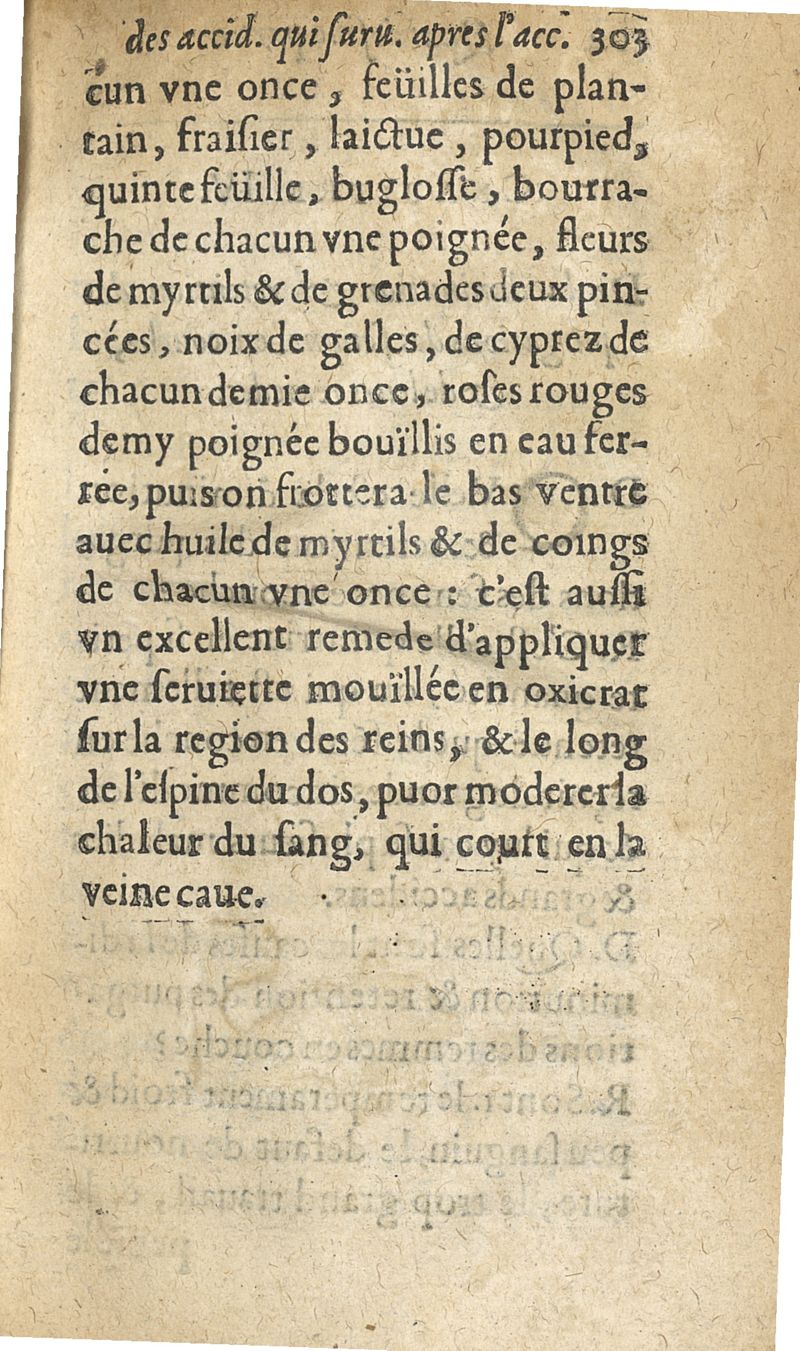 des accid. qui ſuru. apres l'acc. 303
cun vne once, feüilles de plan-
tain, fraiſier, laictue, pourpied,
quintefeüille, bugloſſe, bourra-
che de chacun vne poignée, fleurs
de myrtils & de grenades deux pin-
cées, noix de galles, de cyprez de
chacun demie once, roſes rouges
demy poignée bouïllis en eau fer-
rée, puis on frottera le bas ventre
auec huile de myrtils & de coings
de chacun vne once : c'eſt auſſi
vn excellent remede d'appliquer
vne ſeruiette mouïllée en oxicrat
ſur la region des reins, & le long
de l'eſpine du dos, puor moderer la
chaleur du ſang, qui court en la
veine caue.